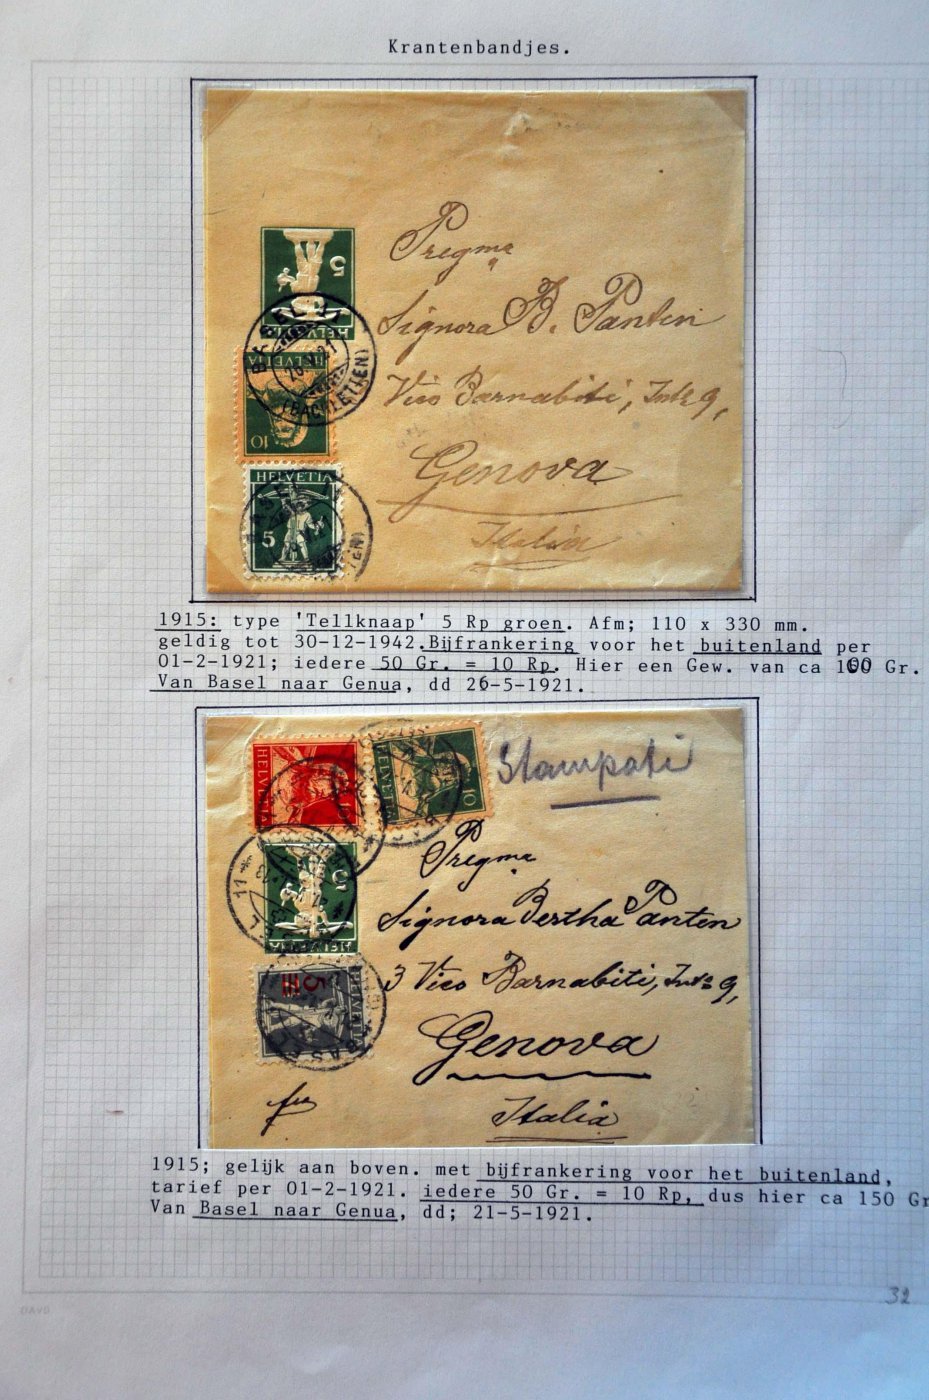 Krantenbandjes.
5
HELVETIA
BASEL 11
26.V.21
(BACHLETTEN)
HELVETIA
10
HELVETIA
5
Pregma
Signora B. Panten
Vico Barnabiti, Int. 9,
Genova
Italia
1915: type 'Tellknaap' 5 Rp groen. Afm; 110 x 330 mm.
geldig tot 30-12-1942.Bijfrankering voor het buitenland per
01-2-1921; iedere 50 Gr. = 10 Rp. Hier een Gew. van ca 100 Gr.
Van Basel naar Genua, dd 26-5-1921.
HELVETIA
HELVETIA
10
Stampati
5
HELVETIA
5
HELVETIA
BASEL
Pregma
Signora Bertha Panten
3 Vico Barnabiti, Int. 9,
Genova
Italia
1915; gelijk aan boven. met bijfrankering voor het buitenland,
tarief per 01-2-1921. iedere 50 Gr. = 10 Rp, dus hier ca 150 Gr
Van Basel naar Genua, dd; 21-5-1921.
32
DAVO